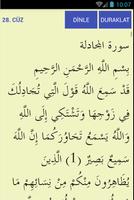 28. CÜZ
DİNLE
DURAKLAT
سورة المجادلة
بِسْمِ اللَّهِ الرَّحْمَنِ الرَّحِيمِ
قَدْ سَمِعَ اللَّهُ قَوْلَ الَّتِي تُجَادِلُكَ
فِي زَوْجِهَا وَتَشْتَكِي إِلَى اللَّهِ
وَاللَّهُ يَسْمَعُ تَحَاوُرَكُمَا إِنَّ اللَّهَ
سَمِيعٌ بَصِيرٌ (1) الَّذِينَ
يُظَاهِرُونَ مِنْكُمْ مِنْ نِسَائِهِمْ مَا